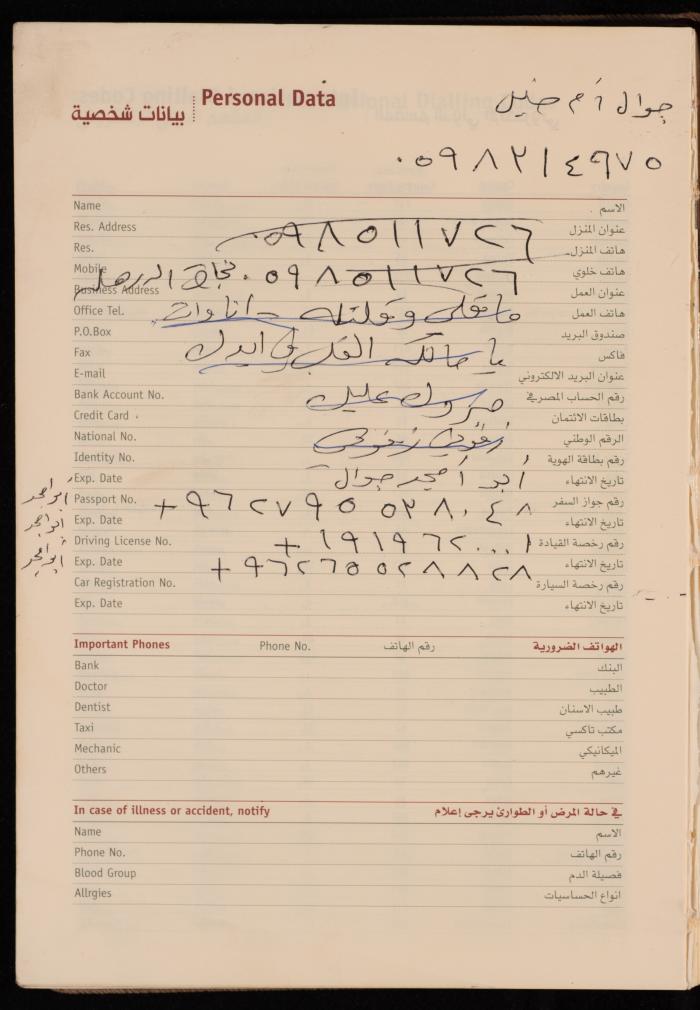 Personal Data بيانات شخصية
جوال أم خليل
٠٥٩٨٢١٤٩٧٥
Name الاسم
Res. Address عنوان المنزل
٠٥٩٨٥١١٧٢٦
Res. هاتف المنزل
Mobile هاتف خلوي
٠٥٩٨٥١١٧٢٦
Business Address عنوان العمل
Office Tel. هاتف العمل
P.O.Box صندوق البريد
Fax فاكس
E-mail عنوان البريد الالكتروني
Bank Account No. رقم الحساب المصرفي
Credit Card بطاقات الائتمان
National No. الرقم الوطني
Identity No. رقم بطاقة الهوية
أبو أمجد جوال
Exp. Date تاريخ الانتهاء
أبو امجد
Passport No. رقم جواز السفر
+٩٦٢٧٩٥٥٣٨٠٤٨
Exp. Date تاريخ الانتهاء
ابو امجد
Driving License No. رقم رخصة القيادة
+١٩١٩٦٢٠٠٠١
Exp. Date تاريخ الانتهاء
ابو امجد
+٩٦٢٦٥٥٢٨٨٢٨
Car Registration No. رقم رخصة السيارة
Exp. Date تاريخ الانتهاء
Important Phones Phone No. رقم الهاتف الهواتف الضرورية
Bank البنك
Doctor الطبيب
Dentist طبيب الاسنان
Taxi مكتب تاكسي
Mechanic الميكانيكي
Others غيرهم
In case of illness or accident, notify في حالة المرض أو الطوارئ يرجى إعلام
Name الاسم
Phone No. رقم الهاتف
Blood Group فصيلة الدم
Allrgies انواع الحساسيات